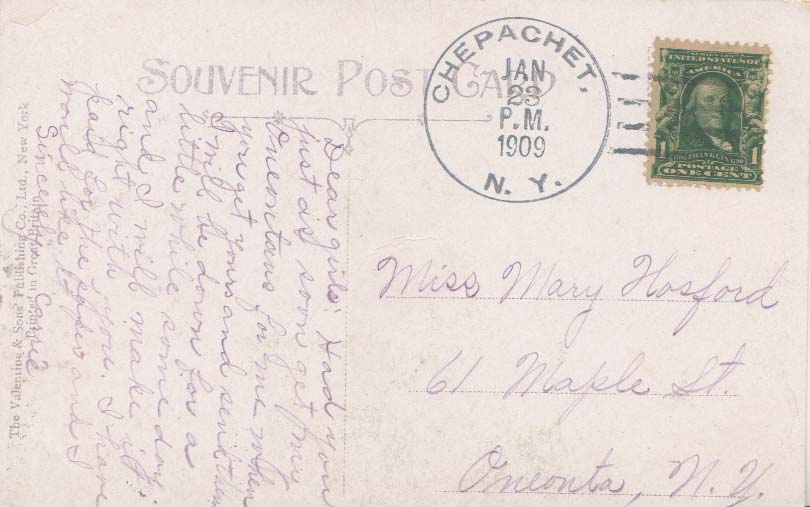 SOUVENIR POST CARD
CHEPACHET,
JAN
23
P.M.
1909
N. Y.
UNITED STATES OF
AMERICA
1
FRANKLIN
1
POSTAGE
ONE CENT
Miss Mary Hosford
61 Maple St.
Oneonta, N. Y.
Dear girls: Had you
just as soon get me
Oneontans for me when
you get yours and send them
I will be down for a
little while some day
and I will make it
right with you. I have
paid for the paper and I
would like to
Sincerely Carrie
The Valentine & Sons' Publishing Co., Ltd., New York
Printed in Great Britain